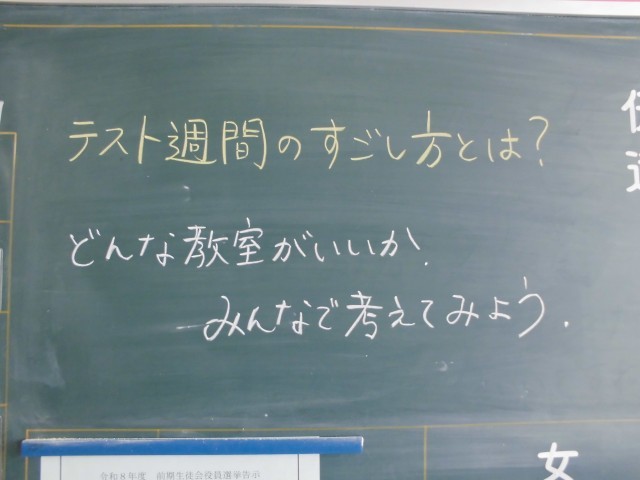 テスト週間のすごし方とは?
どんな教室がいいか.
みんなで考えてみよう.
令和8年度 前期生徒会役員選挙告示
女